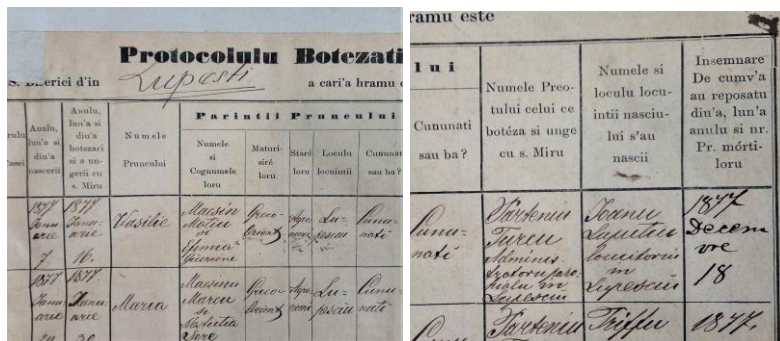 Protocolulu Botezati
S. Bisericii d'in Lupesti a cari'a hramu
rulu
Casei
Anulu,
lun'a si
diu'a
nascerii
Anulu,
lun'a si
diu'a
botezari
si a un-
gerii cu
s. Miru
Numele
Pruncului
Parintii Pruncului
Numele
si
Cognumele
loru
Maturi-
siré
loru
Staré
loru
Loculu
locuintii
Cununat
sau ba?
1877
Janu
arie
7
1877.
Janu-
arie
16.
Vasilie
Macsin
Motiu
si
Greco-
Orient
Agro
nomi
Lu-
pesciu
Cunu-
nati
1877
Janu
arie
1877.
Janu
arie
Maria
Macsimu
Marcu
si
Greco-
Orient
Agro-
nomi
Lu-
pesciu
Cunu-
nati
ramu este
lui
Cununati
sau ba?
Numele Preo-
tului celui ce
botéza si unge
cu s. Miru
Numele si
loculu locu-
intii nasciu-
lui s'au
nascii
Insemnare
De cumv'a
au reposatu
diu'a, lun'a
anulu si nr.
Pr. mórti-
loru
Cunu-
nati
Parteniu
Turcu
Adminis
tratoru paro
chialu in
Lupesciu
Ioanu
Lupitiu
locuitoriu
in
Lupesciu
1877
Decem
vre
18
Parteniu
Triffu
1877.